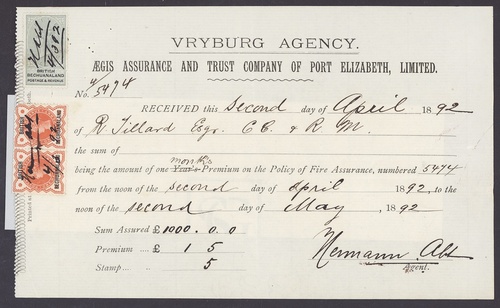 VRYBURG AGENCY.
ÆGIS ASSURANCE AND TRUST COMPANY OF PORT ELIZABETH, LIMITED.
No. 4/5474
RECEIVED this second day of April 1892
of R. Tillard Esqr. C.C. & R.M.
the sum of
months
being the amount of one Year's Premium on the Policy of Fire Assurance, numbered 5474
from the noon of the second day of april 1892, to the
noon of the second day of May, 1892
Sum Assured £1000.0.0
Premium .... £ 1 5
Stamp .... 5
Hermann Abt
Agent.
BRITISH
BECHUANALAND
POSTAGE & REVENUE